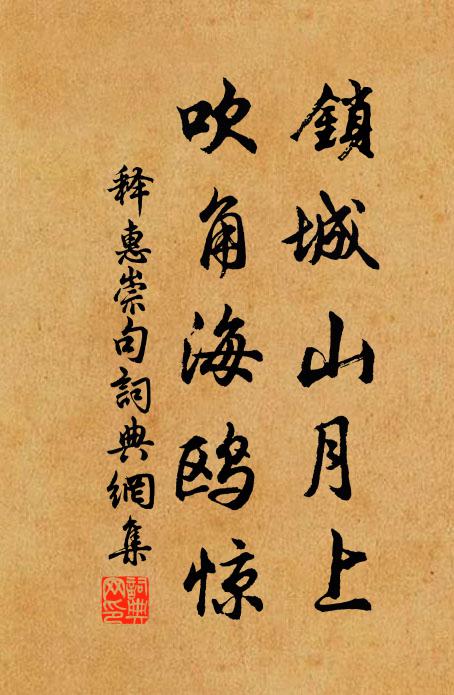 鎖城山月上
吹角海鸥惊
释惠崇句詞典網集
詞典网印